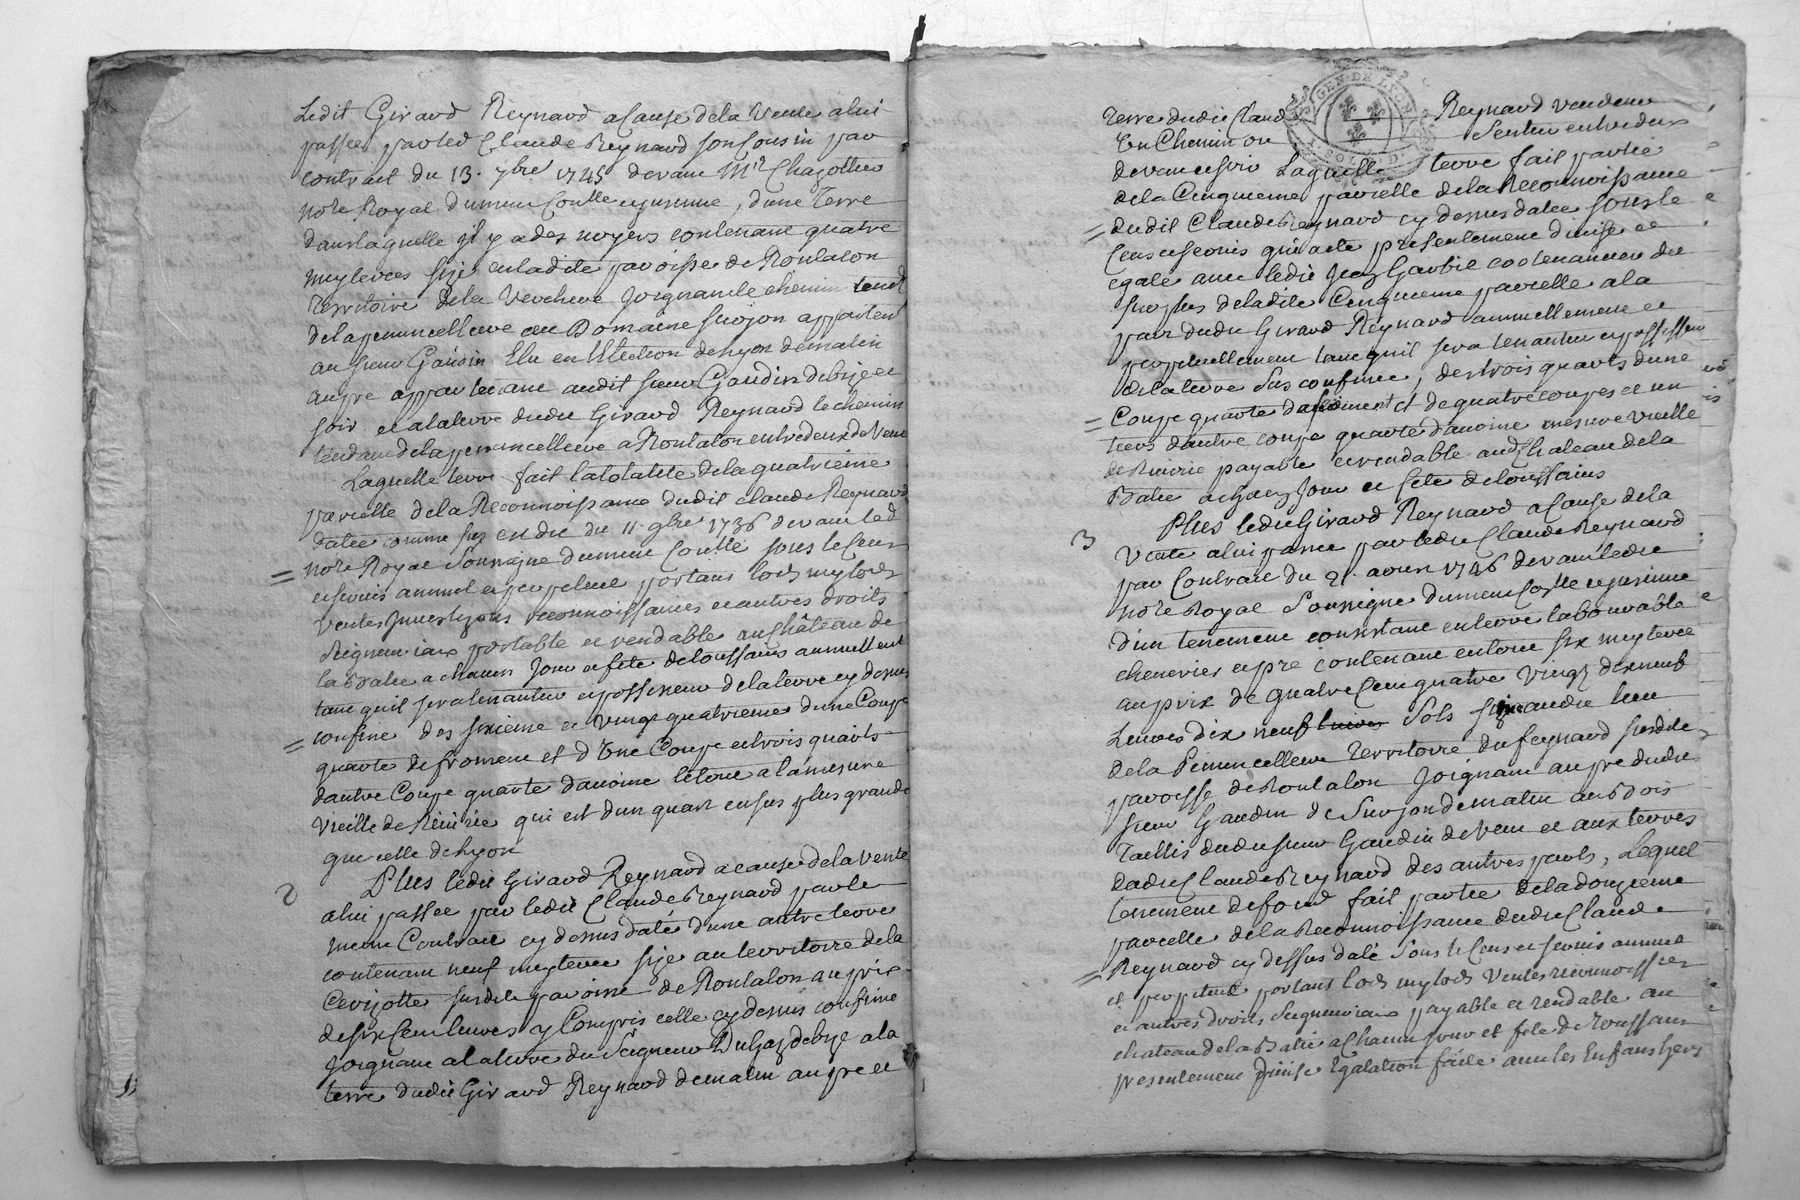 Ledit Giraud Reynaud a Cause de la Vente a lui
passée par led Claude Reynaud son Cousin par
contrait du 13. 7bre 1745 devant Mre Chazottier
nore Royal dumeme, d'une Terre
dans laquelle il y a des noyers contenant quatre
meyterees size en ladite paroisse de Rontalon
Territoire de la Verchere Joignant le chemin tend
de la pemuncelliere au Domaine surjon apparten
au sieur Gaudin Elu en l'Election de Lyon de matin
au pre appartenant audit sieur Gaudin de bize et
soir et a la terre dudit Giraud Reynaud le chemin
tendant de la pemuncelliere a Rontalon entredeux de Vent
Laquelle terre fait la totalité de la quatrieme
parcelle de la Reconnoissance dudit Claude Reynaud
datée comme sus est dit du 11. 9bre 1736 devant led
nore Royal Soussigné sous le Cens
et servis annuel et perpetuel portant lods mylods
Ventes reconnoissances et autres droits
Seigneuriaux portable et rendable au Château de
la Batie a chacun Jour et fete de toussaints annuellemt
tant qu'il sera tenantier et possesseur de la terre cy dessus
confiné des sixieme et Vingt quatrieme d'une Coupe
quarte de froment et d'Une Coupe et trois quarts
d'autre Coupe quarte d'avoine le tout a la mesure
Vieille de Riverie qui est d'un quart en sus plus grande
que celle de Lyon
2 Plus ledit Giraud Reynaud a cause de la Vente
a lui passée par ledit Claude Reynaud par le
meme Contrait cy dessus daté d'une autre terre
contenant neuf meyterée size au territoire de la
Cerizotte susdite paroisse de Rontalon au prix
de six Cent livres y Compris celle cy dessus confiné
Joignant a la terre du Seigneur Du Gaz de bize a la
terre dudit Giraud Reynaud de matin au pre et
GEN. DE LYON
2. SOLS. D
Terre dudit Claud Reynaud vendeur
Un Chemin ou Sentier entredeux
de vent et soir Laquelle terre fait partie
de la Cinquieme parcelle de la Reconnoissance
dudit Claude Reynaud cy dessus datée sous le
Cens et servis qui a été presentement divisé et
egalé avec ledit Jean Garbil cotenancier du
surplus de ladite Cinquieme parcelle a la
part dudit Giraud Reynaud annuellement et
perpetuellement tant qu'il sera tenantier et possesseur
de la terre sus confiné, des trois quarts d'une
Coupe quarte de froment et de quatre coupes et un
tiers d'autre coupe quarte d'avoine mesure vieille
de Riverie payable et rendable audt Chateau de la
Batie a chacun Jour et fete de toussaints
3 Plus ledit Giraud Reynaud a Cause de la
Vente a lui passée par ledit Claude Reynaud
par Contrait du 21. avril 1746 devant ledit
nore Royal Soussigné
d'un tenement consistant en terre labourable
chenevier et pré contenant en tout six meyterée
au prix de quatre Cent quatre Vingt dix neuf
Livres dix neuf livres Sols situé audit lieu
de la Pemuncelliere Territoire du feynaud susdite
paroisse de Rontalon Joignant au pre dudit
sieur Gaudin de Surjon de matin au bois
Taillis dudit sieur Gaudin de Vent et aux terres
dudit Claude Reynaud des autres parts, Lequel
tenement de fond fait partie de la douzieme
parcelle de la Reconnoissance dudit Claude
Reynaud cy dessus daté Sous le Cens et servis annuel
et perpetuel portant lods mylods Ventes reconnoissces
et autres droits Seigneuriaux payable et rendable au
chateau de la Batie a Chacun jour et fete de Toussaint
presentement divisé Egalation faite avec les Enfans hers